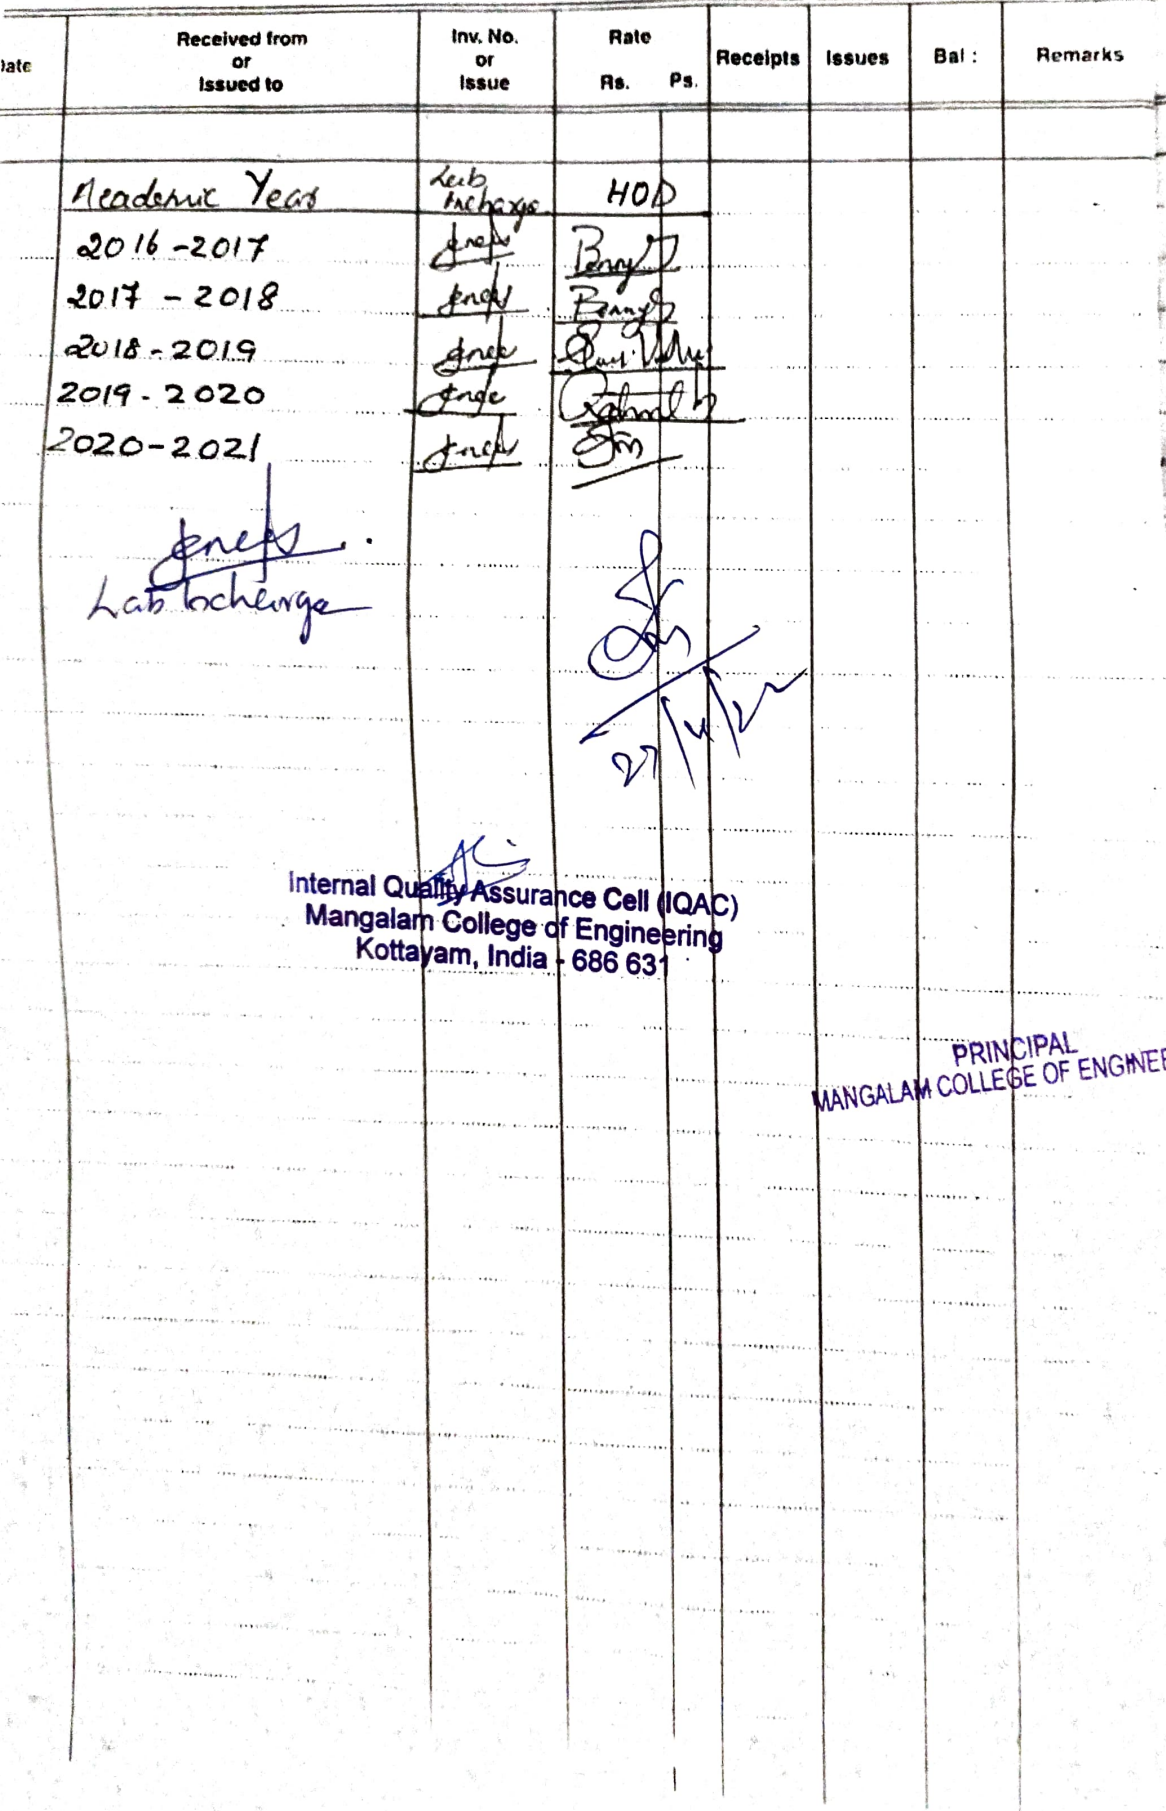 Date
Received from
or
Issued to
Inv. No.
or
Issue
Rate
Rs. Ps.
Receipts
Issues
Bal :
Remarks
Academic Year
Lab
Incharge
HOD
2016-2017
2017 - 2018
2018-2019
2019-2020
2020-2021
Lab Incharge
27/4/22
Internal Quality Assurance Cell (IQAC)
Mangalam College of Engineering
Kottayam, India - 686 631
PRINCIPAL
MANGALAM COLLEGE OF ENGINEE